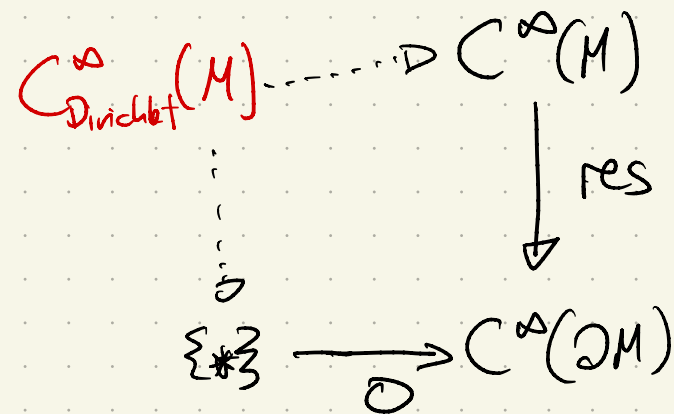 C^∞_Dirichlet(M) C^∞(M)
res
{*} 0 C^∞(∂M)